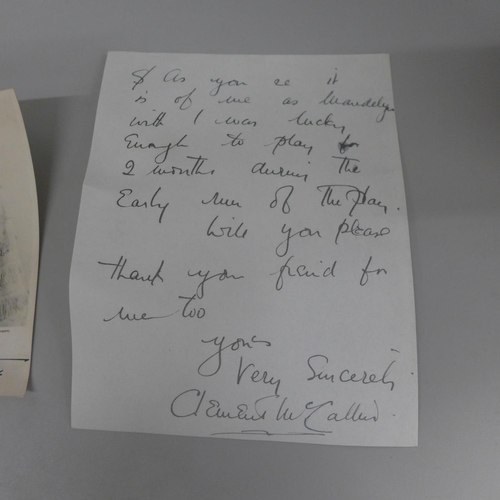 & As you see it
is of me as
with I was lucky
Enough to play for
2 months during the
Early run of The Play.
Will you please
thank your freind for
me too
yours
Very Sincerely
Clement McCallin.